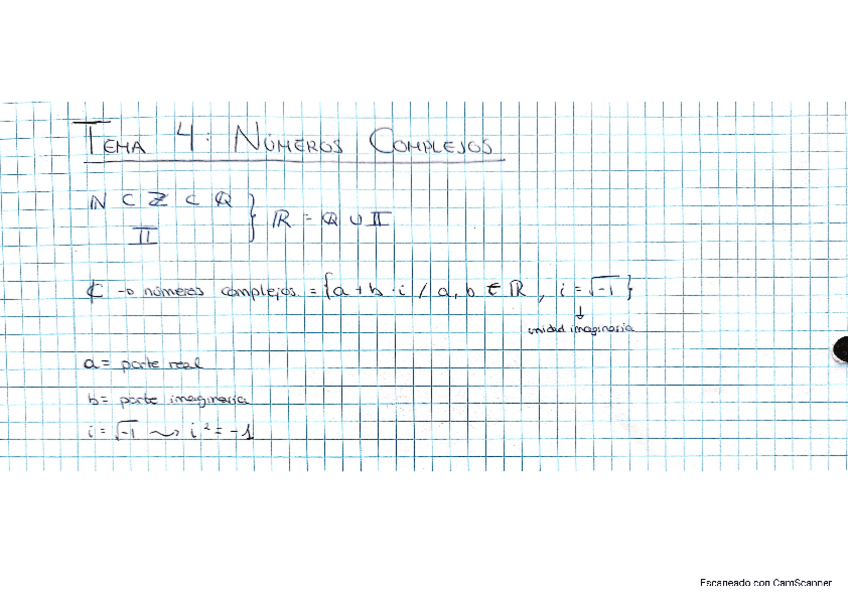 TEMA 4: NÚMEROS COMPLEJOS
ℕ ⊂ ℤ ⊂ ℚ
𝕀
} ℝ = ℚ ∪ 𝕀
ℂ → números complejos = {a + b · i / a, b ∈ ℝ, i = √-1}
↓
unidad imaginaria
a = parte real
b = parte imaginaria
i = √-1 ⇝ i² = -1
Escaneado con CamScanner